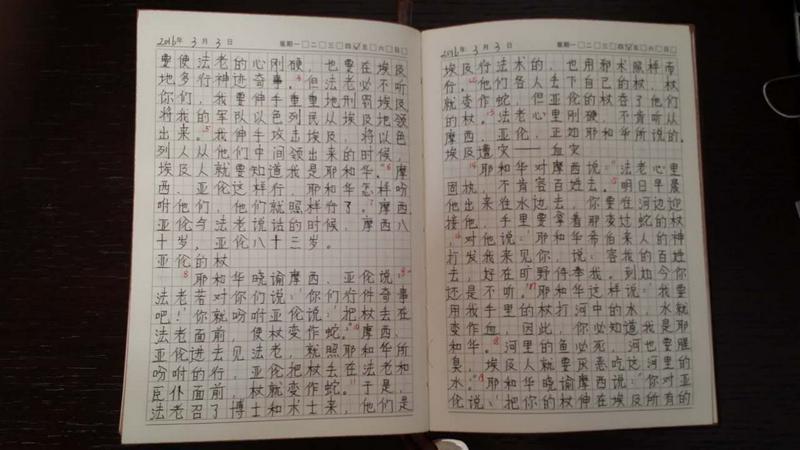 2016年 3月 3日 星期 一□二□三□四☑五□六□日□
要使法老的心刚硬，也要在埃及
地多行神迹奇事。⁴但法老必不听
你们，我要伸手重重地刑罚埃及，
将我的军队以色列民从埃及地领
出来。⁵我伸手攻击埃及，将以色
列人从他们中间领出来的时候，
埃及人就要知道我是耶和华。”⁶摩
西、亚伦这样行，耶和华怎样吩
咐他们，他们就照样行了。⁷摩西、
亚伦与法老说话的时候，摩西八
十岁，亚伦八十三岁。
亚伦的杖
⁸耶和华晓谕摩西、亚伦说：⁹“
法老若对你们说：‘你们行件奇事
吧！’你就吩咐亚伦说：‘把杖丢在
法老面前，使杖变作蛇。’”¹⁰摩西、
亚伦进去见法老，就照耶和华所
吩咐的行，亚伦把杖丢在法老和
臣仆面前，杖就变作蛇。¹¹于是，
法老召了博士和术士来，他们是
2016年 3月 3日 星期 一□二□三□四☑五□六□日□
埃及行法术的，也用邪术照样而
行。¹²他们各人丢下自己的杖，杖
就变作蛇，但亚伦的杖吞了他们
的杖。¹³法老心里刚硬，不肯听从
摩西、亚伦，正如耶和华所说的。
埃及遭灾——血灾
¹⁴耶和华对摩西说：“法老心里
固执，不肯容百姓去。¹⁵明日早晨
他出来往水边去，你要往河边迎
接他，手里要拿着那变过蛇的杖，
¹⁶对他说：‘耶和华希伯来人的神
打发我来见你，说：容我的百姓
去，好在旷野侍奉我。到如今你
还是不听。¹⁷耶和华这样说：我要
用我手里的杖打河中的水，水就
变作血，因此，你必知道我是耶
和华。¹⁸河里的鱼必死，河也要腥
臭，埃及人就要厌恶吃这河里的
水。’”¹⁹耶和华晓谕摩西说：“你对亚
伦说：‘把你的杖伸在埃及所有的